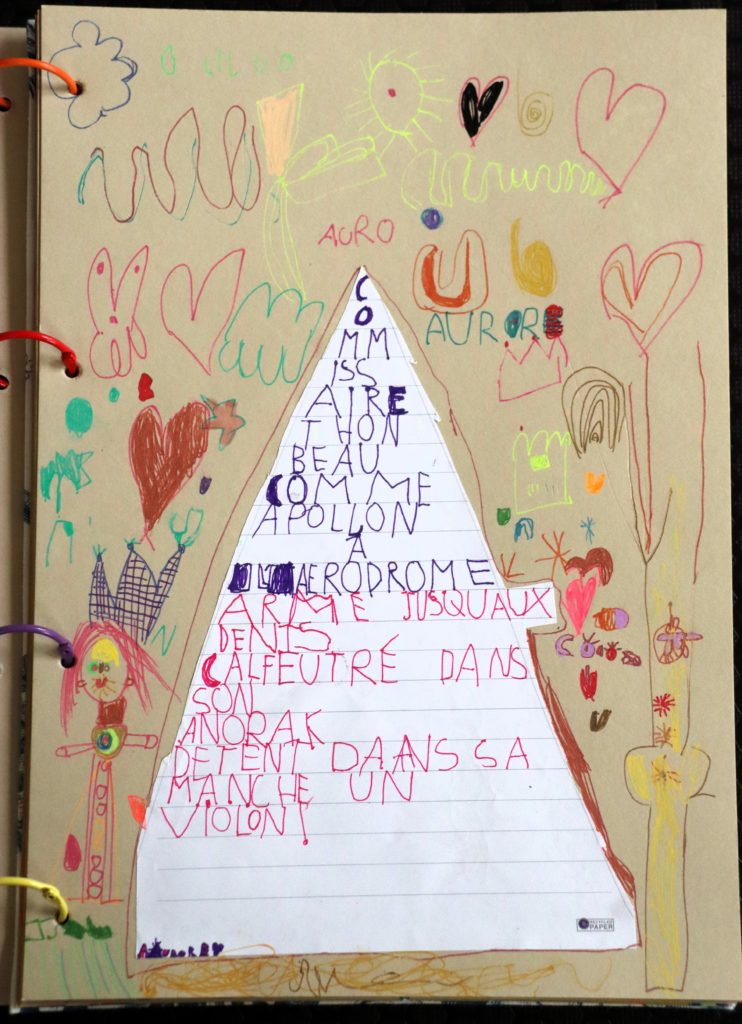 AURO
AURORE
CO
MM
ISS
AIRE
THON
BEAU
COMME
APOLLON
A
AERODROME
ARME JUSQUAUX
DENTS
CALFEUTRÉ DANS
SON
ANORAK
DETENT DAANS SA
MANCHE UN
VIOLON!
RECYCLED
PAPER
AURORE